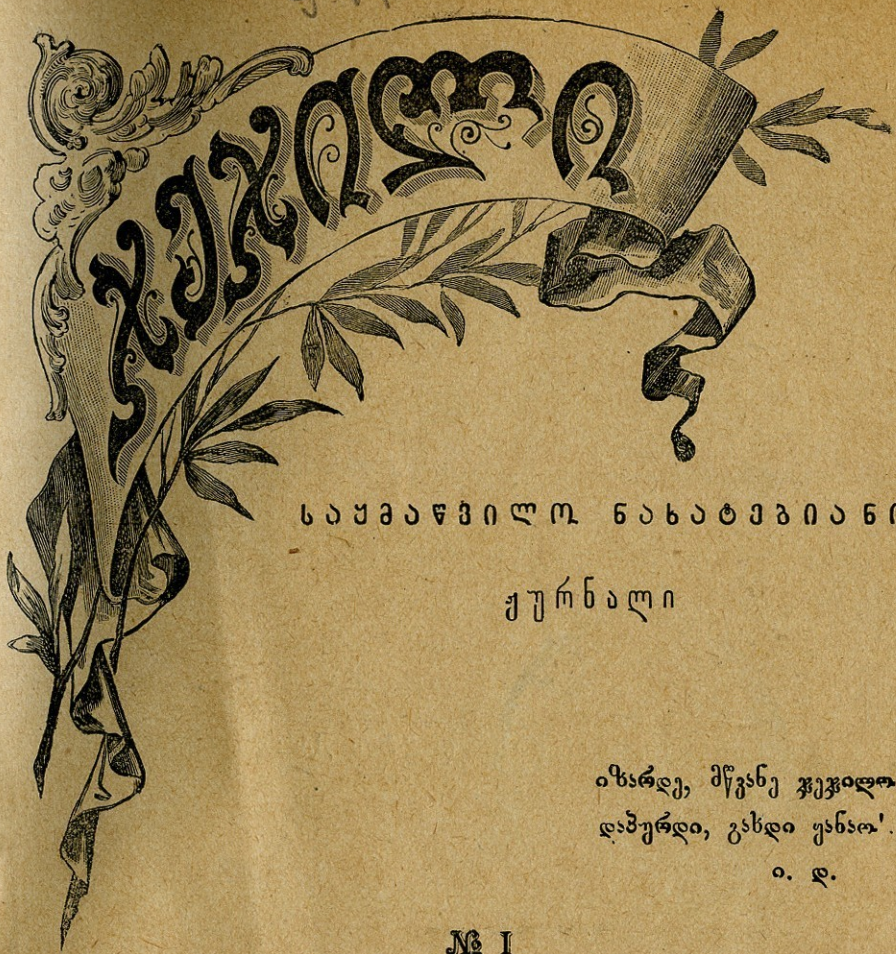 ჯეჯილი
საყმაწვილო ნახატებიანი
ჟურნალი
იზარდე, მწვანე ჯეჯილო
დაპურდი, გახდი ყანაო'.
ი. დ.
№ I